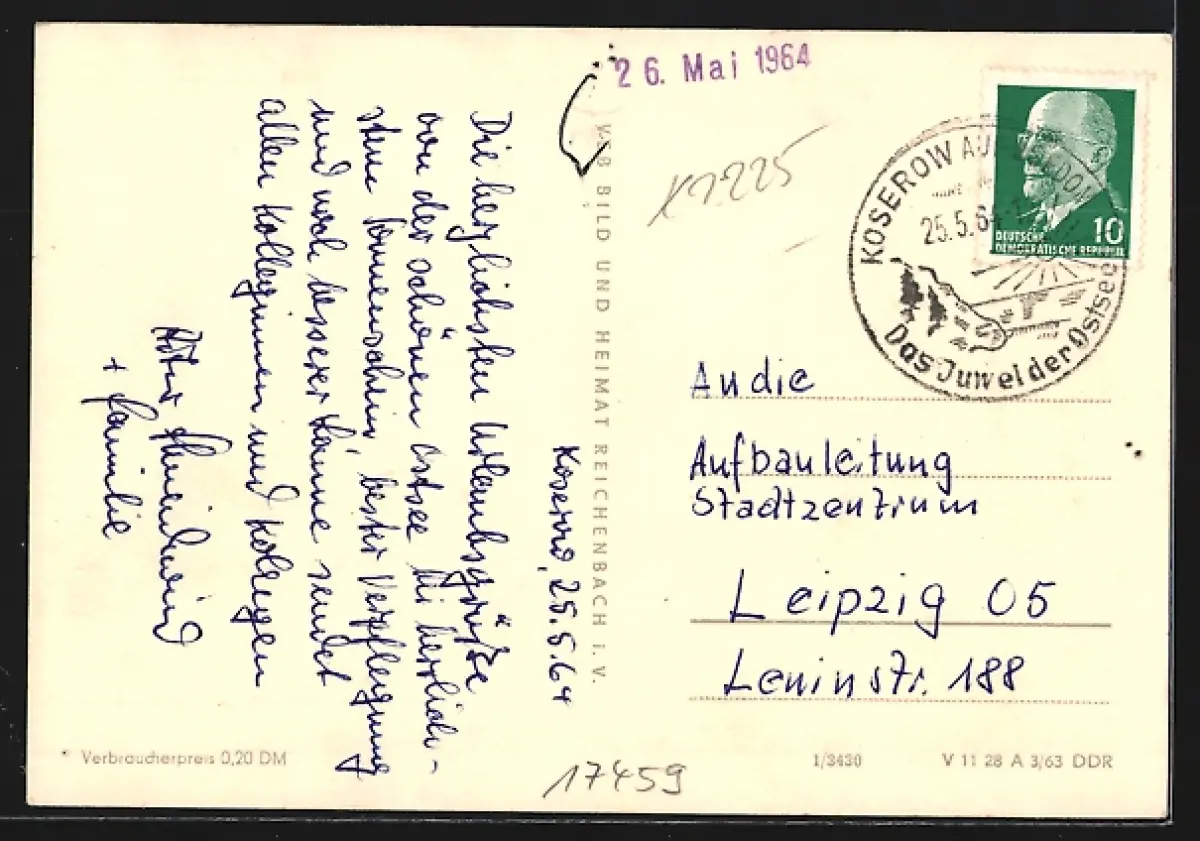 26. Mai 1964
K1225
KOSEROW AUF USEDOM
25.5.64
Das Juwel der Ostsee
10
DEUTSCHE
DEMOKRATISCHE REPUBLIK
Koserow, 25.5.64
Die herzlichsten Urlaubsgrüße
von der schönen Ostsee bei herrlich-
stem Sonnenschein, bester Verpflegung
und noch besserer Laune sendet
allen Kolleginnen und Kollegen
+ Familie
VEB BILD UND HEIMAT REICHENBACH I. V.
An die
Aufbauleitung
Stadtzentrum
Leipzig 05
Leninstr. 188
Verbraucherpreis 0,20 DM
17459
1/3430
V 11 28 A 3/63 DDR